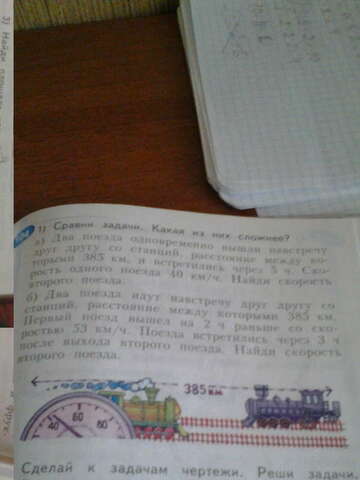 1) Сравни задачи. Какая из них сложнее?
а) Два поезда одновременно вышли навстречу
друг другу со станций, расстояние между ко-
торыми 385 км, и встретились через 5 ч. Ско-
рость одного поезда 40 км/ч. Найди скорость
второго поезда.
б) Два поезда идут навстречу друг другу со
станций, расстояние между которыми 385 км.
Первый поезд вышел на 2 ч раньше со ско-
ростью 53 км/ч. Поезда встретились через 3 ч
после выхода второго поезда. Найди скорость
второго поезда.
385 км
40 60 80
Сделай к задачам чертежи. Реши задачи.
3) Найди